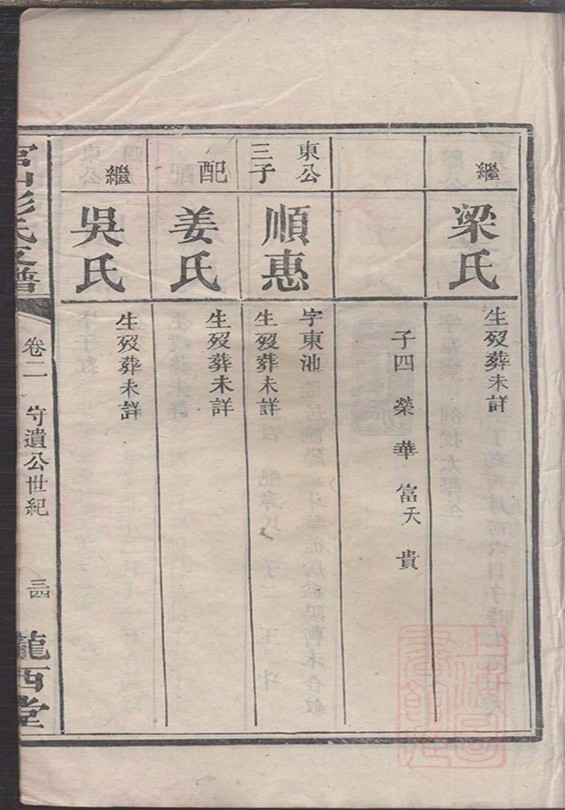 繼
梁氏
生歿葬未詳
子四 榮 華 富 貴
東公
三子
順惠
字東池
生歿葬未詳
配
姜氏
生歿葬未詳
繼
吳氏
生歿葬未詳
彭氏支譜
卷二
守遺公世紀
三四
隴西堂